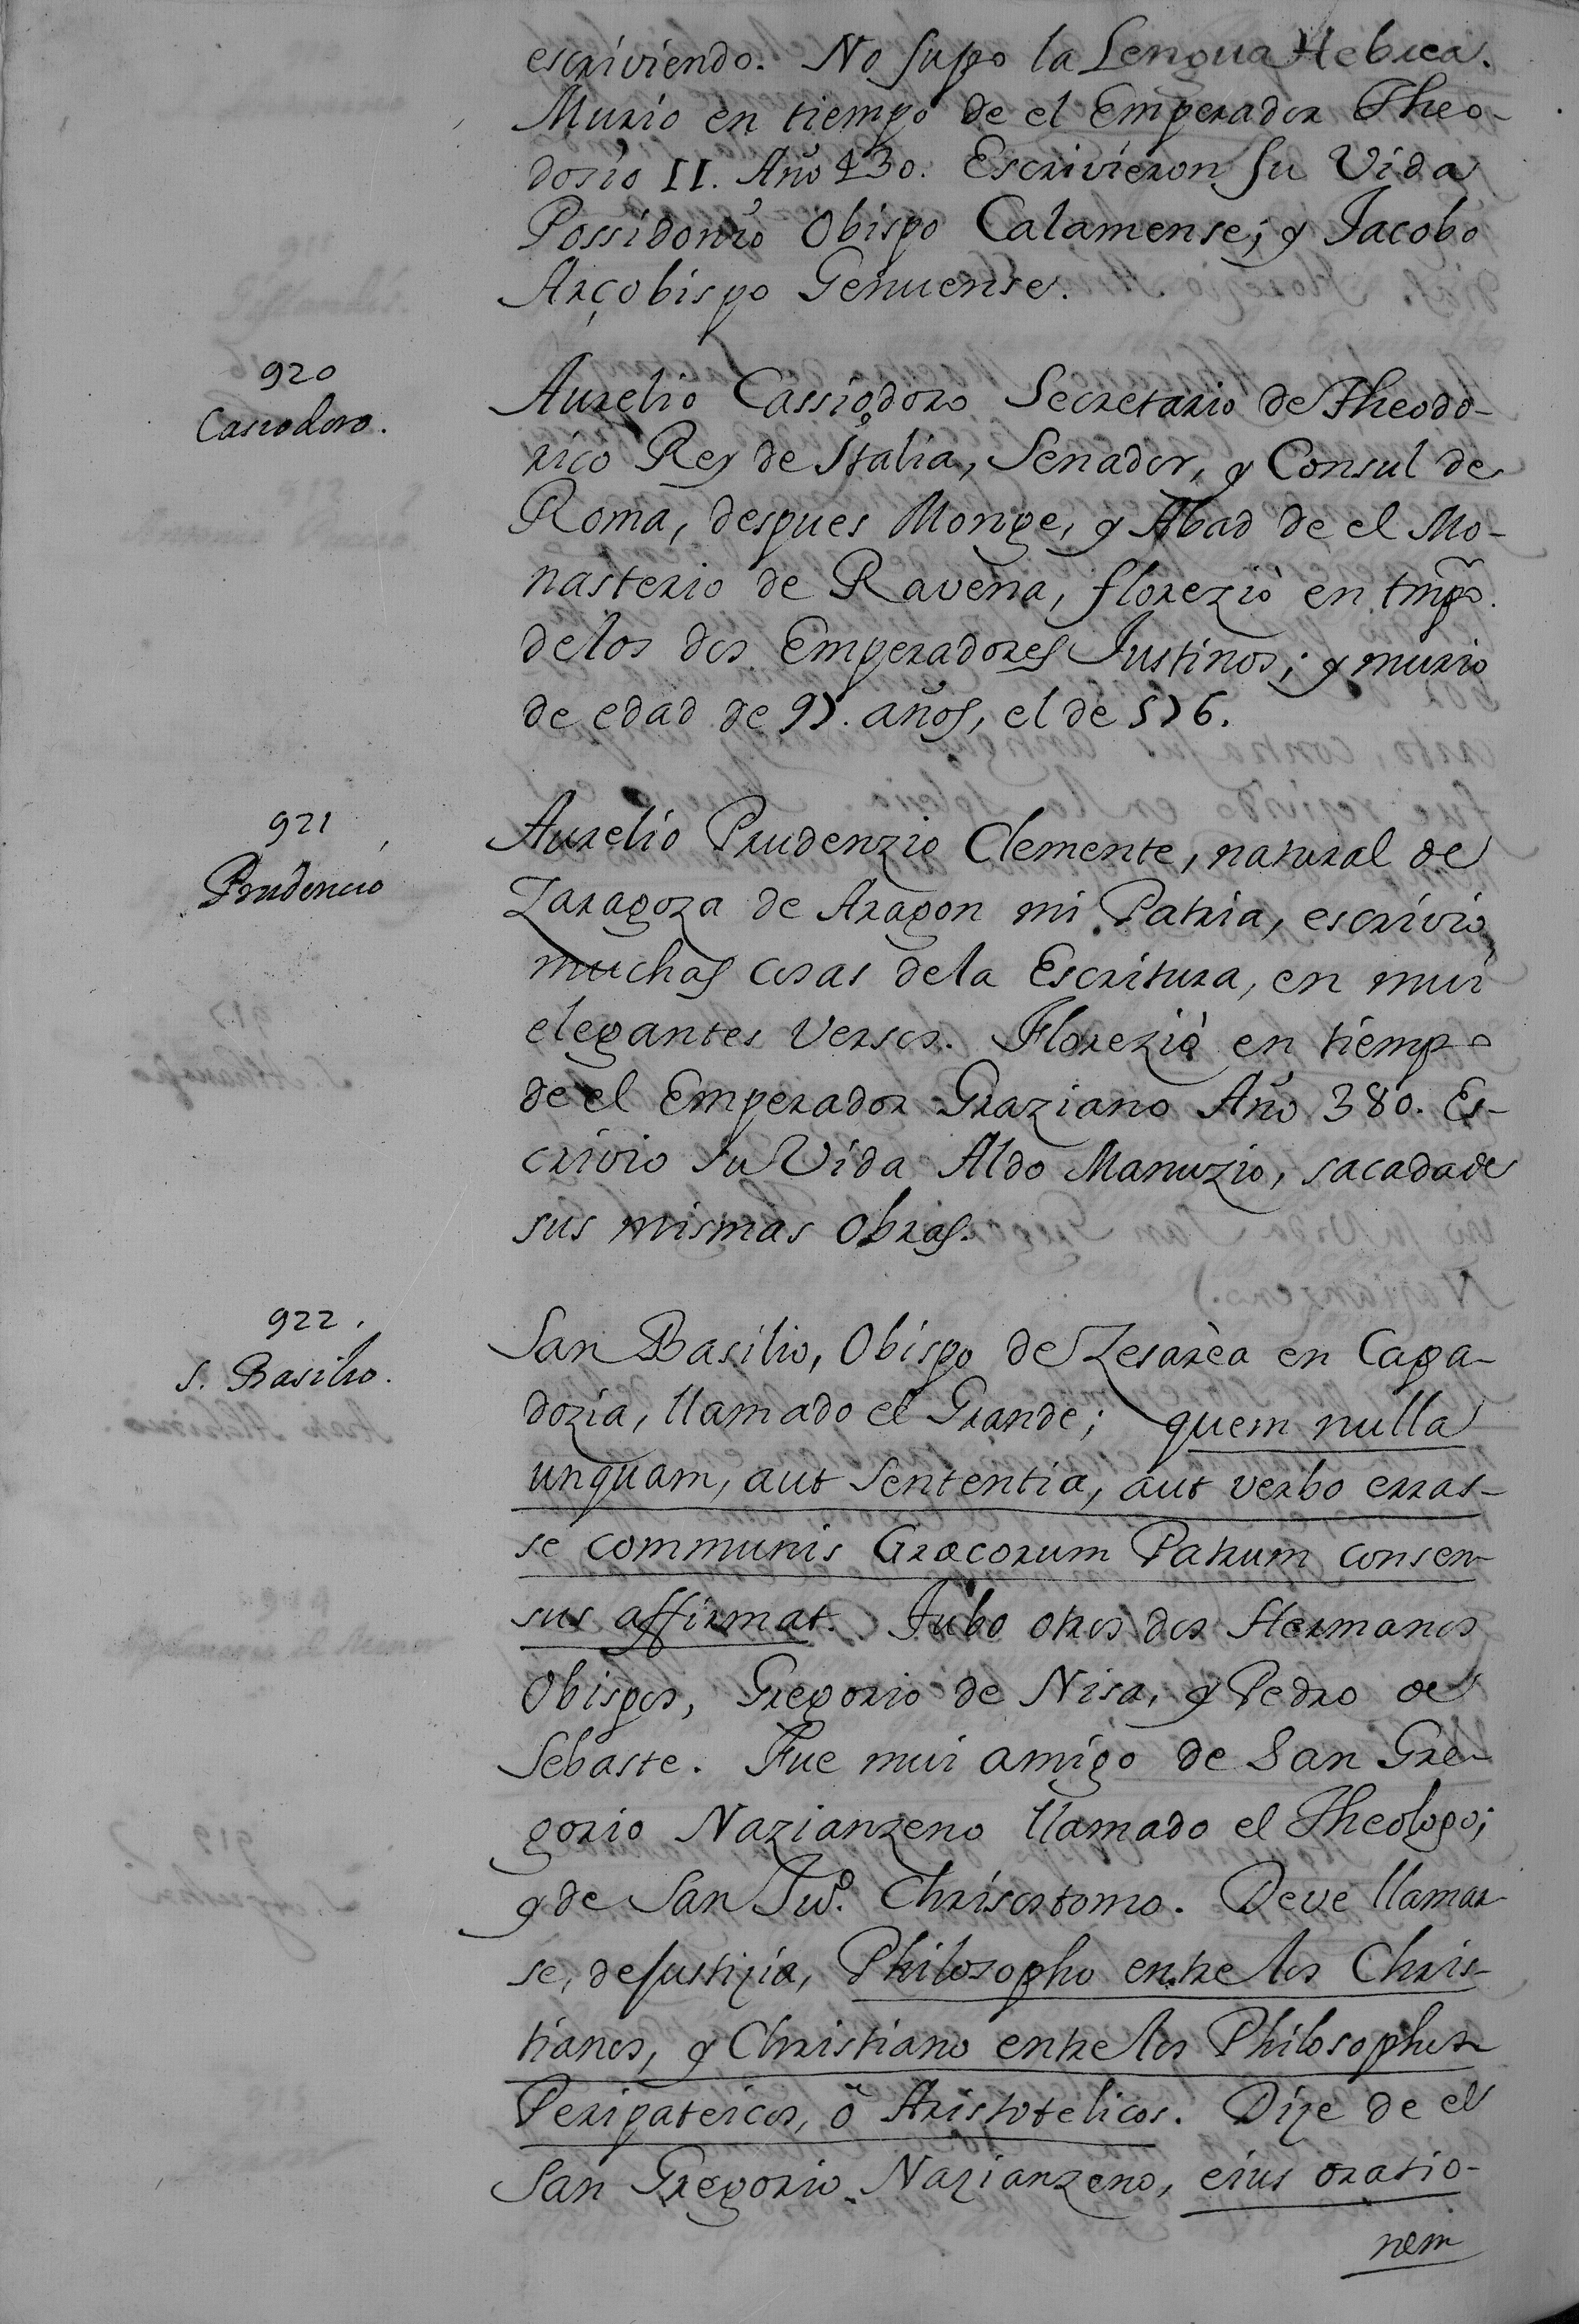 escriviendo. No supo la Lengua Hebrea.
Murio en tiempo de el Emperador Theo-
dosio II. Año 430. Escrivieron su Vida
Possidonio Obispo Calamense; y Jacobo
Arçobispo Genuense.
920
Casiodoro.
Aurelio Cassiodoro Secretario de Theodo-
rico Rey de Italia, Senador, y Consul de
Roma, despues Monge, y Abad de el Mo-
nasterio de Ravena, florezio en tmpo.
delos dos Emperadores Justinos; y murio
de edad de 97. años, el de 576.
921
Prudencio
Aurelio Prudenzio Clemente, natural de
Zaragoza de Aragon mi Patria, escrivio
muchas cosas dela Escritura, en mui
elegantes versos. Florezio en tiempo
de el Emperador Graziano Año 380. Es-
crivio su Vida Aldo Manuzio, sacada de
sus mismas obras.
922.
S. Basilio.
San Basilio, Obispo de Zesarèa en Capa-
dozia, llamado el Grande; quem nulla
unquam, aut sententia, aut verbo erras-
se communis Græcorum Patrum consen-
sus affirmat. Tubo otros dos Hermanos
Obispos, Gregorio de Nisa, y Pedro de
Sebaste. Fue mui amigo de San Gre-
gorio Nazianzeno llamado el Theologo;
y de San Juo. Chrisostomo. Deve llamar
se, de justizia, Philosopho entre los Chris-
tianos, y Christiano entre los Philosophos
Peripateicos, ò Aristotelicos. Dize de el
San Gregorio Nazianzeno, eius oratio-
nem